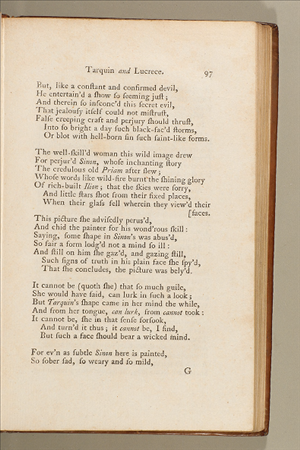 Tarquin and Lucrece. 97
But, like a conſtant and confirmed devil,
He entertain'd a ſhow ſo ſeeming juſt;
And therein ſo inſconc'd this ſecret evil,
That jealouſy itſelf could not miſtruſt,
Falſe creeping craft and perjury ſhould thruſt,
Into ſo bright a day ſuch black-fac'd ſtorms,
Or blot with hell-born ſin ſuch ſaint-like forms.
The well-ſkill'd woman this wild image drew
For perjur'd Sinon, whoſe inchanting ſtory
The credulous old Priam after ſlew;
Whoſe words like wild-fire burnt the ſhining glory
Of rich-built Ilion; that the ſkies were ſorry,
And little ſtars ſhot from their fixed places,
When their glaſs fell wherein they view'd their
[faces.
This picture ſhe adviſedly perus'd,
And chid the painter for his wond'rous ſkill:
Saying, ſome ſhape in Sinon's was abus'd,
So fair a form lodg'd not a mind ſo ill:
And ſtill on him ſhe gaz'd, and gazing ſtill,
Such ſigns of truth in his plain face ſhe ſpy'd,
That ſhe concludes, the picture was bely'd.
It cannot be (quoth ſhe) that ſo much guile,
She would have ſaid, can lurk in ſuch a look;
But Tarquin's ſhape came in her mind the while,
And from her tongue, can lurk, from cannot took:
It cannot be, ſhe in that ſenſe forſook,
And turn'd it thus; it cannot be, I find,
But ſuch a face ſhould bear a wicked mind.
For ev'n as ſubtle Sinon here is painted,
So ſober ſad, ſo weary and ſo mild,
G